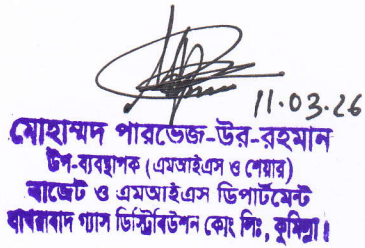 11.03.26
মোহাম্মদ পারভেজ-উর-রহমান
উপ-ব্যবস্থাপক (এমআইএস ও শেয়ার)
বাজেট ও এমআইএস ডিপার্টমেন্ট
বাখরাবাদ গ্যাস ডিস্ট্রিবিউশন কোং লিঃ, কুমিল্লা।